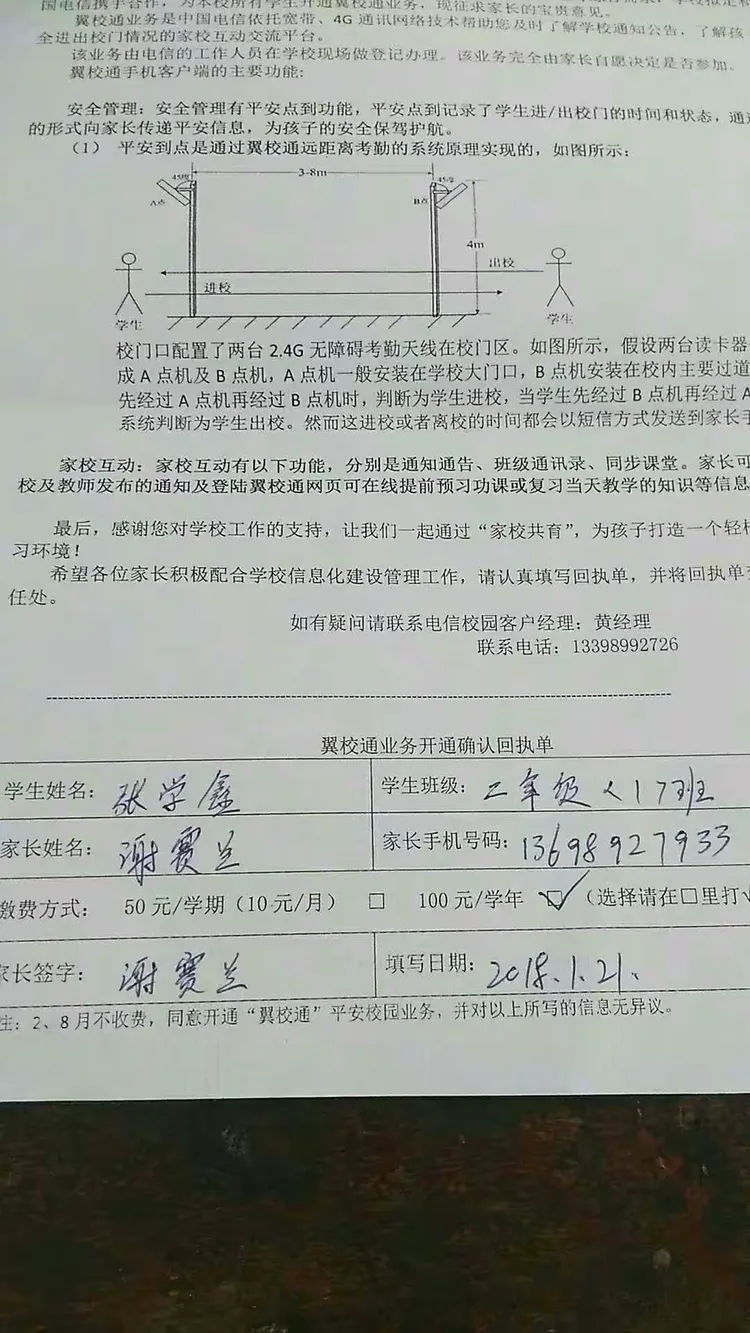 国电信携手合作，为本校所有学生开通翼校通业务，现征求家长的宝贵意见。
翼校通业务是中国电信依托宽带、4G 通讯网络技术帮助您及时了解学校通知公告，了解孩
全进出校门情况的家校互动交流平台。
该业务由电信的工作人员在学校现场做登记办理。该业务完全由家长自愿决定是否参加。
翼校通手机客户端的主要功能：
安全管理：安全管理有平安点到功能，平安点到记录了学生进/出校门的时间和状态，通过
的形式向家长传递平安信息，为孩子的安全保驾护航。
（1） 平安到点是通过翼校通远距离考勤的系统原理实现的，如图所示：
3-8m
45度
45度
A点
B点
4m
出校
进校
学生
学生
校门口配置了两台 2.4G 无障碍考勤天线在校门区。如图所示，假设两台读卡器
成 A 点机及 B 点机，A 点机一般安装在学校大门口，B 点机安装在校内主要过道
先经过 A 点机再经过 B 点机时，判断为学生进校，当学生先经过 B 点机再经过 A
系统判断为学生出校。然而这进校或者离校的时间都会以短信方式发送到家长手
家校互动：家校互动有以下功能，分别是通知通告、班级通讯录、同步课堂。家长可
校及教师发布的通知及登陆翼校通网页可在线提前预习功课或复习当天教学的知识等信息
最后，感谢您对学校工作的支持，让我们一起通过“家校共育”，为孩子打造一个轻松
习环境！
希望各位家长积极配合学校信息化建设管理工作，请认真填写回执单，并将回执单
任处。
如有疑问请联系电信校园客户经理：黄经理
联系电话：13398992726
翼校通业务开通确认回执单
学生姓名：张学鑫 学生班级：二年级<17班
家长姓名：谢赛兰 家长手机号码：13698927933
缴费方式： 50 元/学期（10 元/月） □ 100 元/学年 ☑（选择请在□里打√
家长签字：谢赛兰 填写日期：2018.1.21.
注：2、8 月不收费，同意开通“翼校通”平安校园业务，并对以上所写的信息无异议。